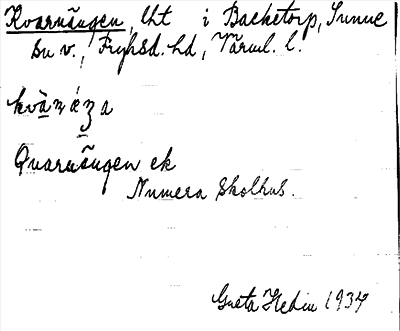 Kvarnängen, lht i Backetorp, Sunne
sn v., Fryksd. hd, Värml. l.
kvànǽza
Qvarnängen ek
Numera Skolhus.
Greta Hedin 1934